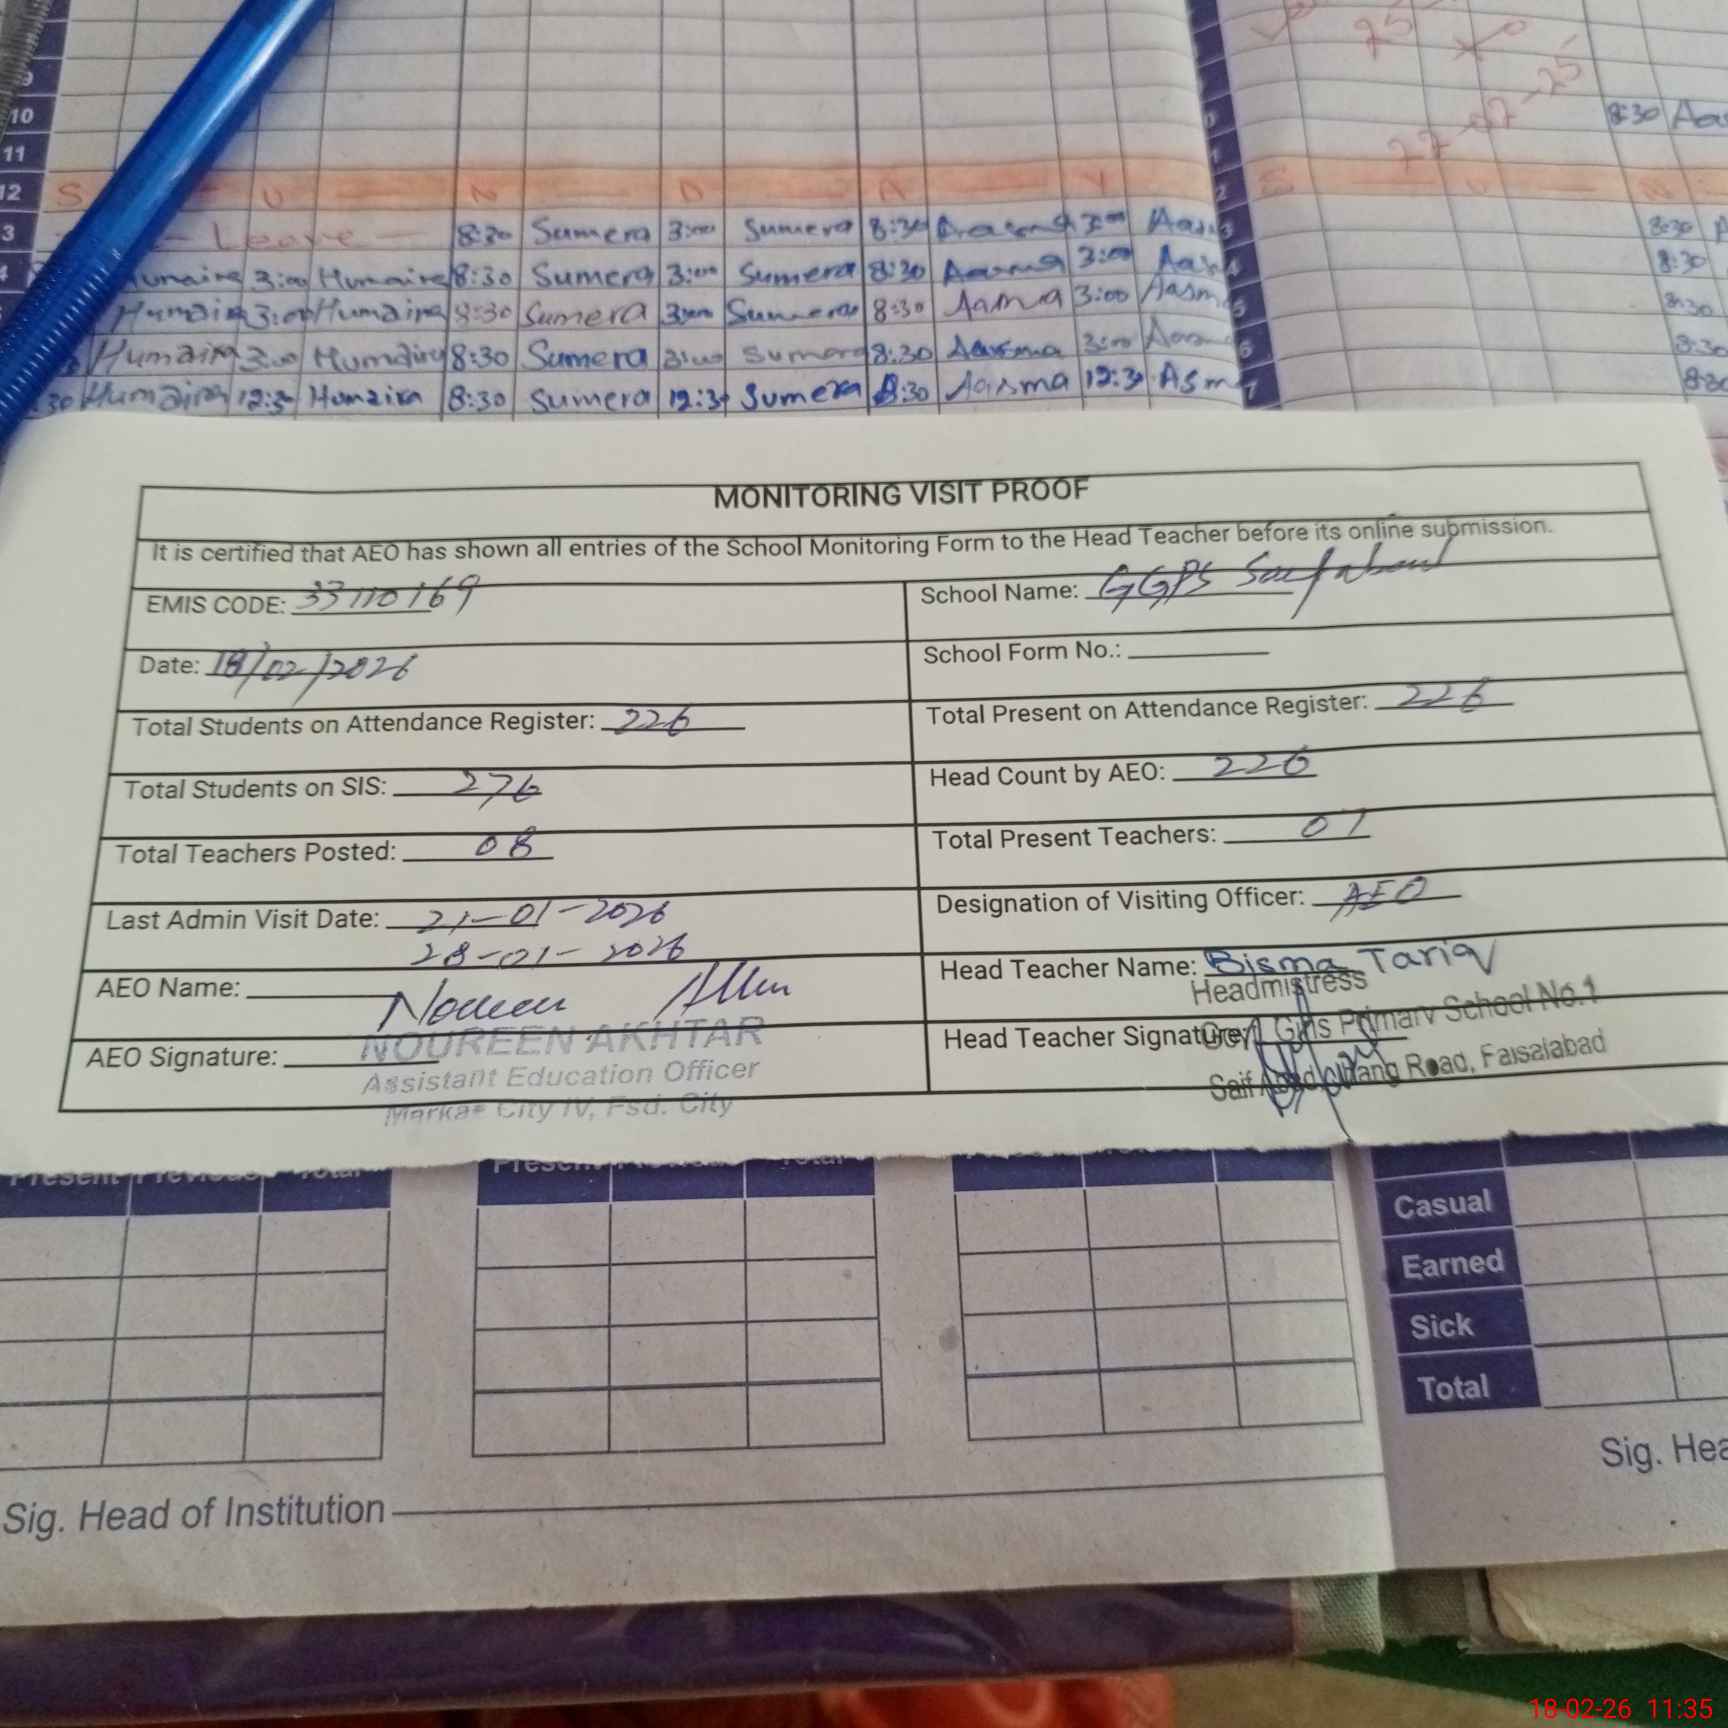 9
10 8:30
11 22-07-25
12 S U N D A Y
3 Leave 8:30 Sumera 3:00 Sumera 8:30 3:00 8:30
4 3:00 Humaira 8:30 Sumera 3:00 Sumera 8:30 Aasma 3:00 8:30
5 Humaira 3:00 Humaira 8:30 Sumera 3:00 Sumera 8:30 Aasma 3:00 Aasma 8:30
6 Humaira 3:00 Humaira 8:30 Sumera 3:00 Sumera 8:30 Aasma 3:00 8:30
Humaira 12:30 Humaira 8:30 Sumera 12:30 Sumera 8:30 Aasma 12:30 Asma 7
MONITORING VISIT PROOF
It is certified that AEO has shown all entries of the School Monitoring Form to the Head Teacher before its online submission.
EMIS CODE: 33110169 School Name: GGPS Saifabad
Date: 18/02/2026 School Form No.:
Total Students on Attendance Register: 226 Total Present on Attendance Register: 226
Total Students on SIS: 276 Head Count by AEO: 226
Total Teachers Posted: 08 Total Present Teachers:
Last Admin Visit Date: 21-01-2026 Designation of Visiting Officer: AEO
28-01-2026
AEO Name: Noureen Head Teacher Name: Bisma Tariq
Headmistress
AEO Signature: Head Teacher Signature:
NOUREEN AKHTAR Govt Girls Primary School No.1
Assistant Education Officer Saif Abad Road, Faisalabad
Markaz City IV, Fsd. City
Present Previous Total Present Total
Casual
Earned
Sick
Total
Sig. Head of Institution Sig. Hea
18-02-26 11:35